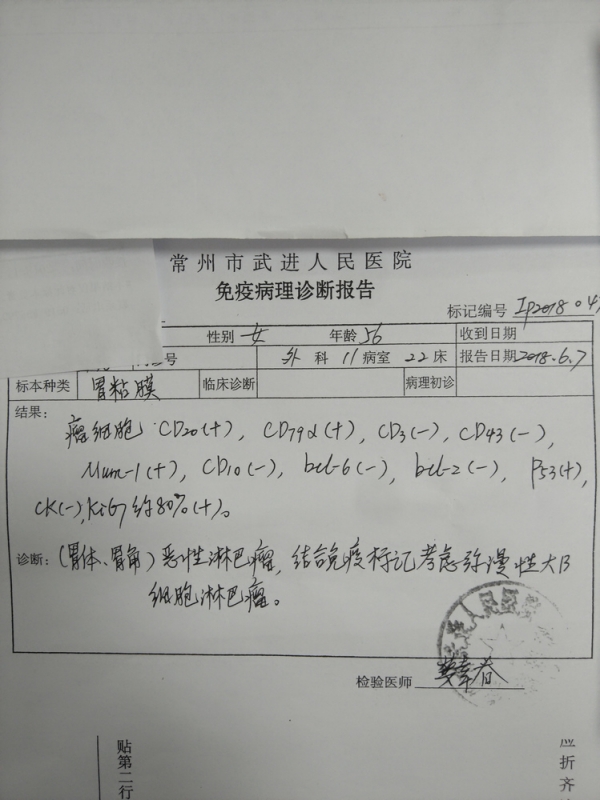 常州市武进人民医院
免疫病理诊断报告
标记编号 Ip2018-04
性别 女 年龄 56 收到日期
号 外 科 11 病室 22 床 报告日期 2018.6.7
标本种类 胃粘膜 临床诊断 病理初诊
结果:
瘤细胞 CD20(+), CD79α(+), CD3(-), CD43(-),
Mum-1(+), CD10(-), bcl-6(-), bcl-2(-), P53(+),
CK(-), Ki67约80%(+)。
诊断: (胃体、胃角) 恶性淋巴瘤, 结合免疫标记考虑弥漫性大B
细胞淋巴瘤。
武进人民医院
检验医师
贴第二行
应折齐